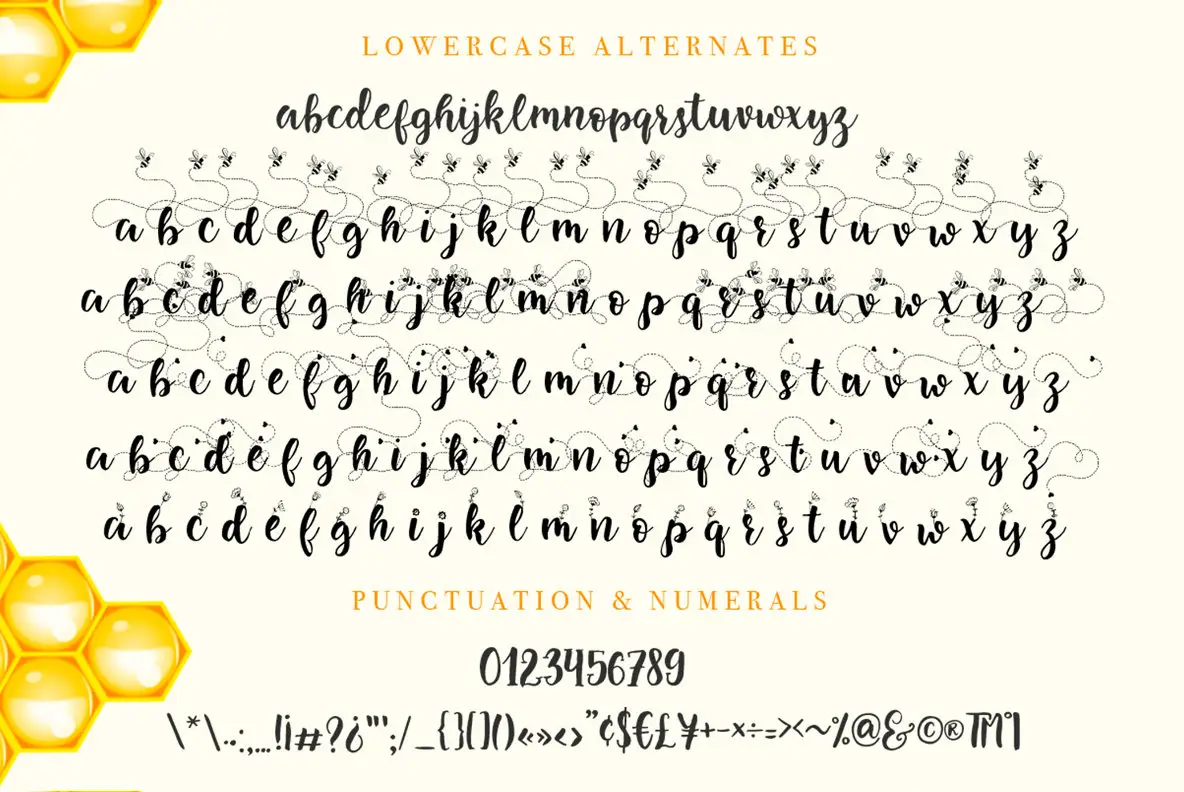 LOWERCASE ALTERNATES
abcdefghijklmnopqrstuvwxyz
a b c d e f g h i j k l m n o p q r s t u v w x y z
a b c d e f g h i j k l m n o p q r s t u v w x y z
a b c d e f g h i j k l m n o p q r s t u v w x y z
a b c d e f g h i j k l m n o p q r s t u v w x y z
a b c d e f g h i j k l m n o p q r s t u v w x y z
PUNCTUATION & NUMERALS
0123456789
\*\·.:,…!¡#?¿"';/_{}[]()«»‹›”¢$€£¥+-×÷=><~%@&©®™°|